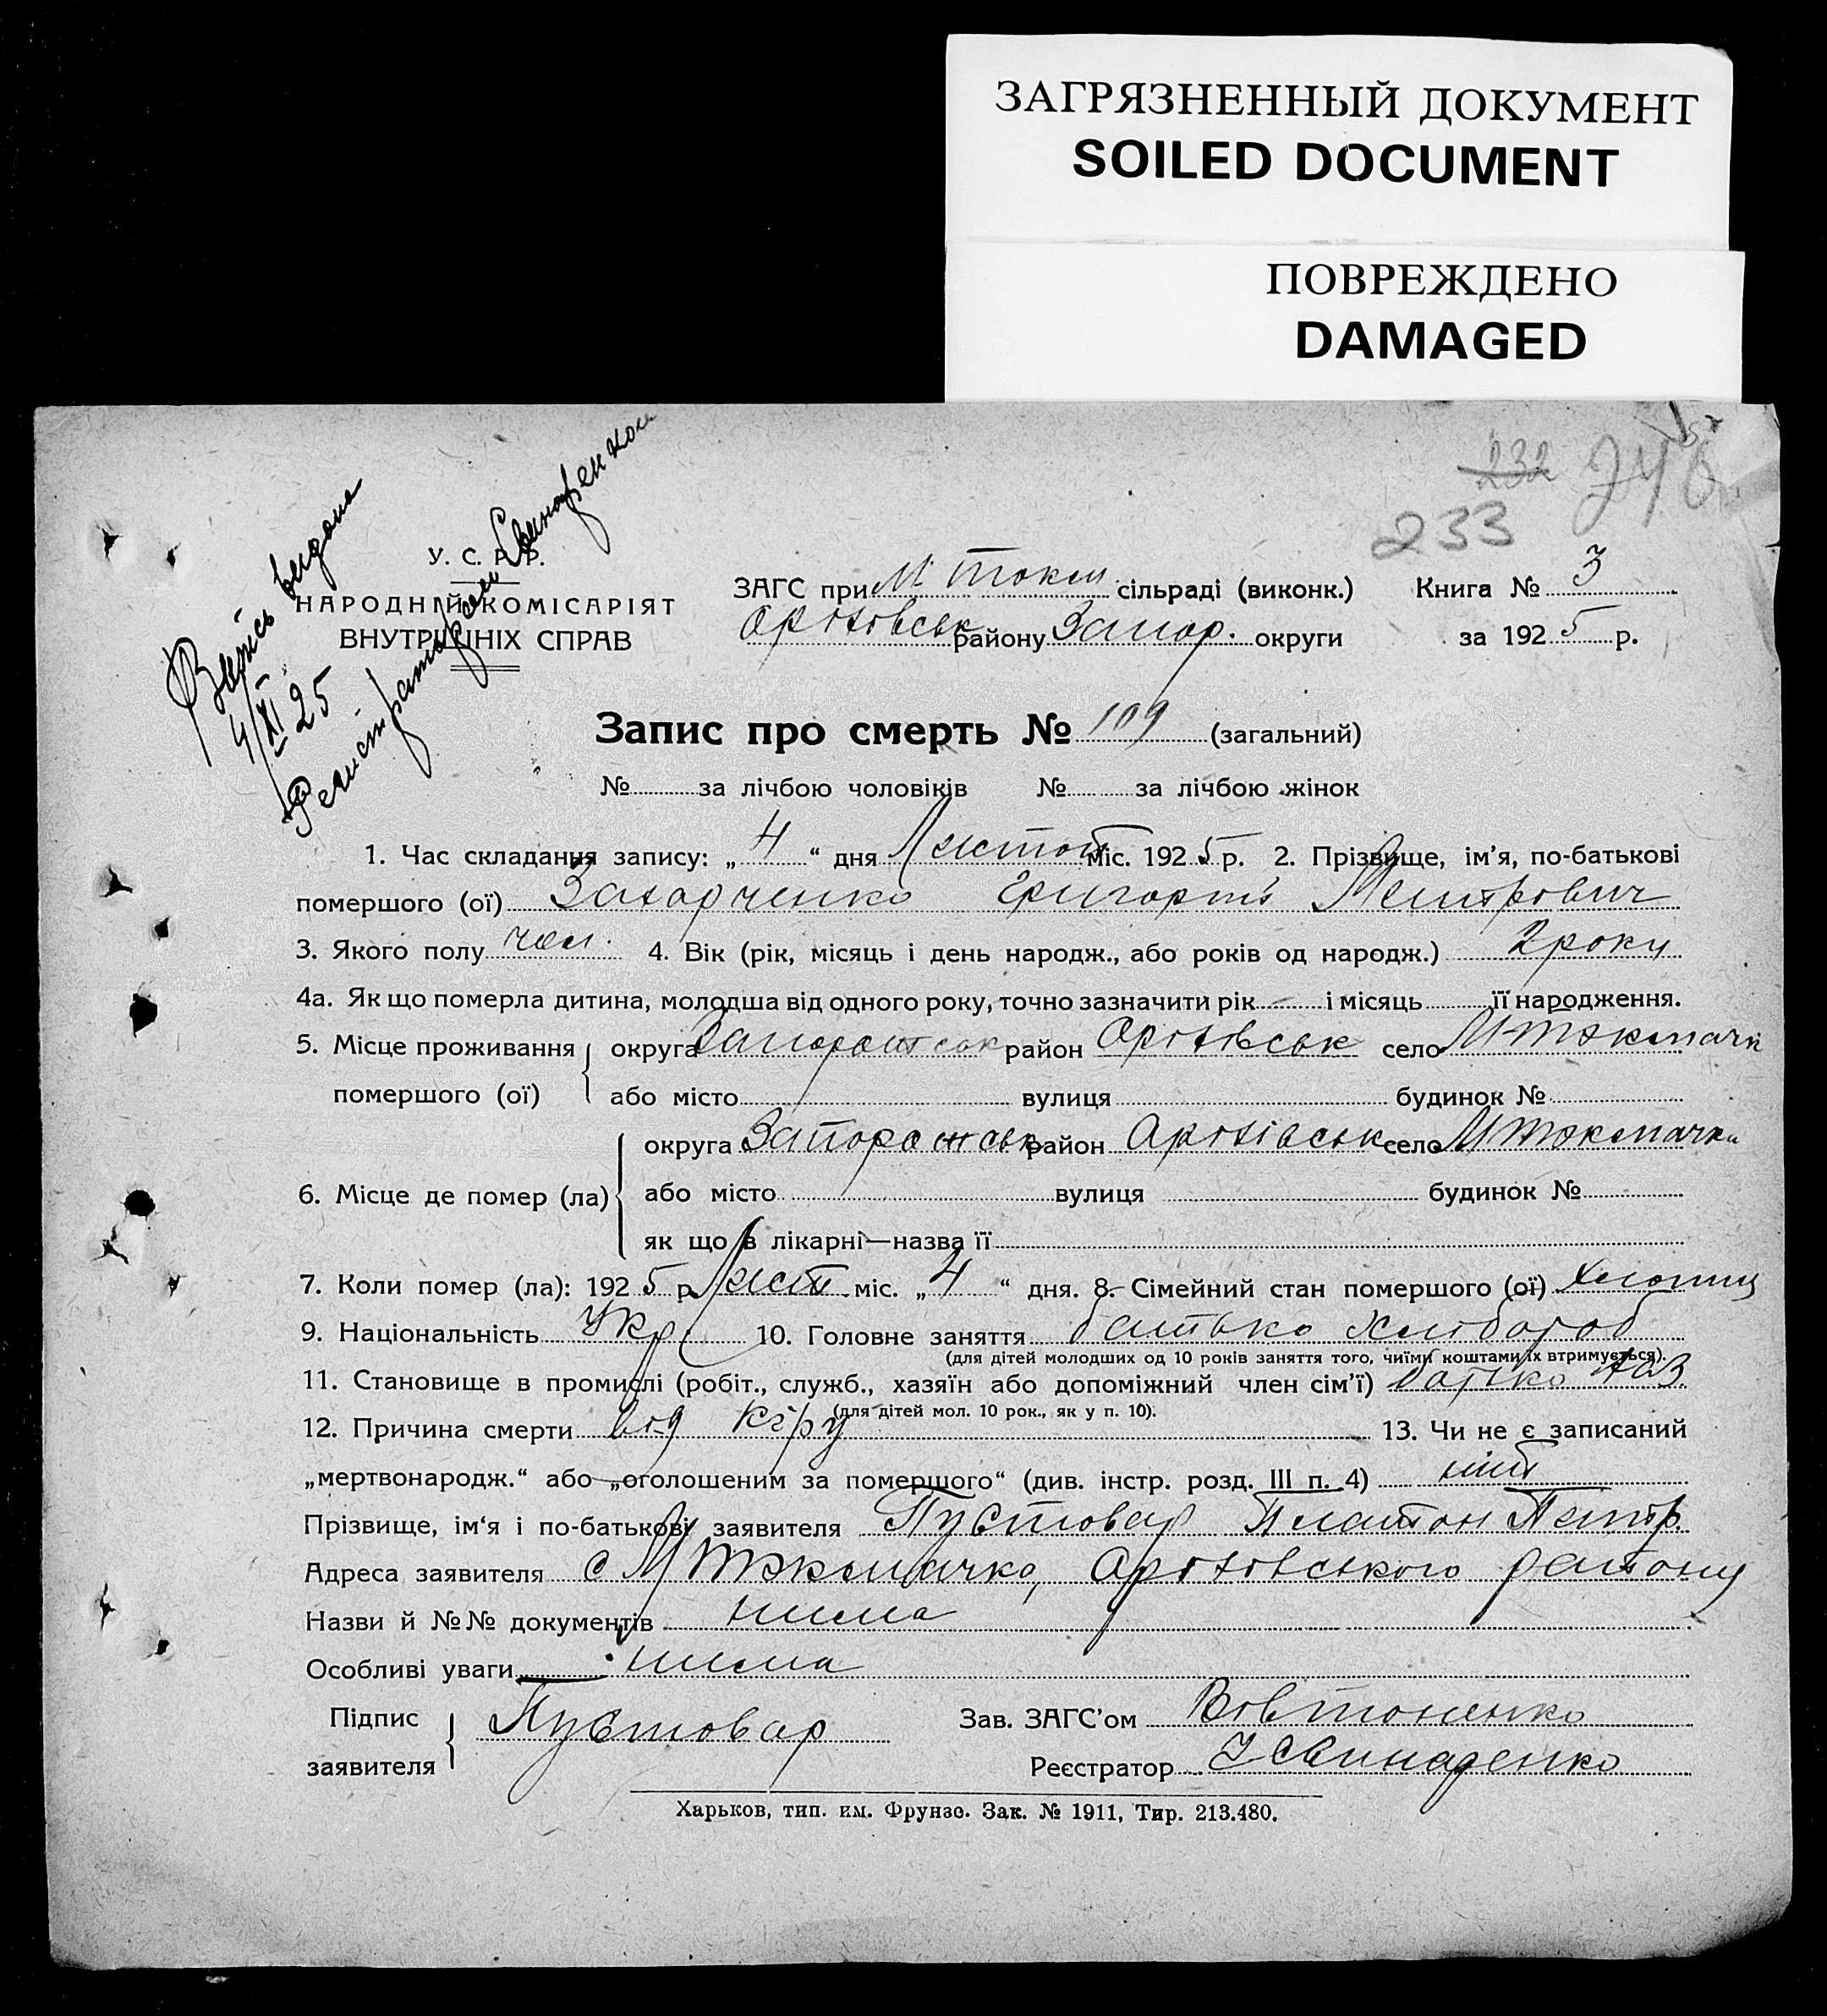 ЗАГРЯЗНЕННЫЙ ДОКУМЕНТ
SOILED DOCUMENT
ПОВРЕЖДЕНО
DAMAGED
232 246
233
Витісь видана
4/XI 25
Регистратором Свинаренком
У. С. Р. Р.
НАРОДНІЙ КОМІСАРІЯТ
ВНУТРІШНІХ СПРАВ
ЗАГС при М Токм. сільраді (виконк.) Книга № 3
Оріхівськ району Запор. округи за 1925 р.
Запис про смерть № 109 (загальний)
№ за лічбою чоловіків № за лічбою жінок
1. Час складання запису: „ 4 “ дня Листоп міс. 1925 р. 2. Прізвище, ім’я, по-батькові
помершого (ої) Захарченко Григорій
3. Якого полу чол. 4. Вік (рік, місяць і день народж., або років од народж.) 2 року
4а. Як що померла дитина, молодша від одного року, точно зазначити рік і місяць її народження.
5. Місце проживання округа Запорожськ район Оріхівськ село М Токмачки
помершого (ої) або місто вулиця будинок №
округа Запорожськ район Оріхівськ село М Токмачки
6. Місце де помер (ла) або місто вулиця будинок №
як що в лікарні—назва її
7. Коли помер (ла): 1925 р. Лист міс. „ 4 “ дня. 8. Сімейний стан помершого (ої) хлопиц
9. Національність Укр 10. Головне заняття батько хлібороб
(для дітей молодших од 10 років заняття того, чиїми коштами їх втримується).
11. Становище в промислі (робіт., служб., хазяїн або допоміжний член сім’ї) батько хаз
(для дітей мол. 10 рок., як у п. 10).
12. Причина смерти від кіру 13. Чи не є записаний
„мертвонародж.“ або „оголошеним за помершого“ (див. інстр. розд. III п. 4) ниїт
Прізвище, ім‘я і по-батькові заявителя Пустовар Платон Петр.
Адреса заявителя с М Токмачка, Оріхівського району
Назви й №№ документів нима
Особливі уваги нима
Підпис
заявителя Пустовар
Зав. ЗАГС’ом Вовтоненко
Реєстратор Свинаренко
Харьков, тип. им. Фрунзе. Зак. № 1911, Тир. 213.480.